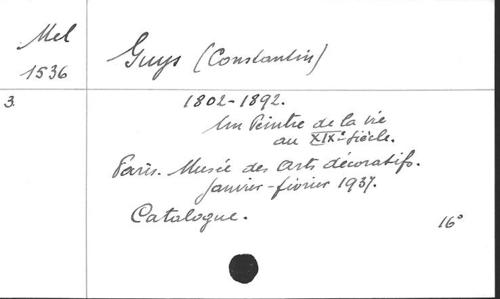 Mel
1536
Guys (Constantin)
3
1802-1892.
Un Peintre de la vie
au XIXe siècle.
Paris. Musée des arts décoratifs.
Janvier-février 1937.
Catalogue.
16°